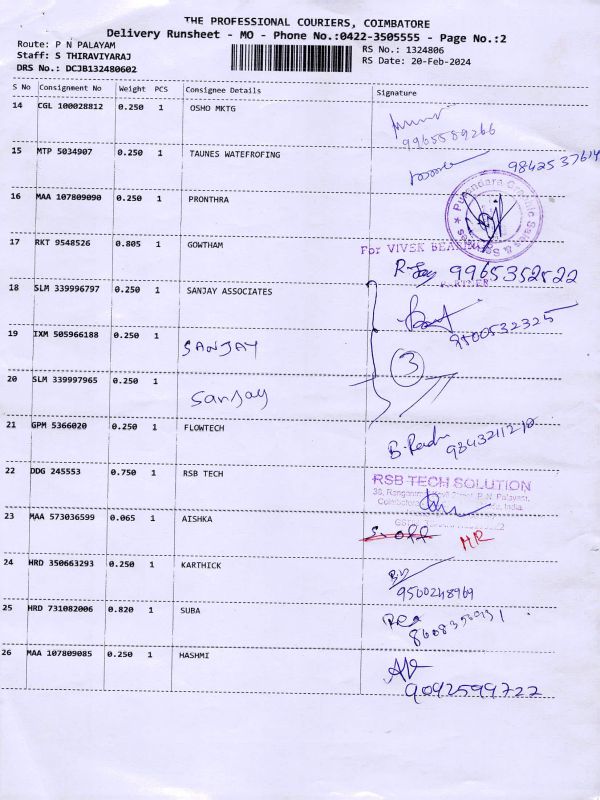 THE PROFESSIONAL COURIERS, COIMBATORE
Delivery Runsheet - MO - Phone No.:0422-3505555 - Page No.:2
Route: P N PALAYAM
RS No.: 1324806
Staff: S THIRAVIYARAJ
RS Date: 20-Feb-2024
DRS No.: DCJB132480602
S No Consignment No Weight PCS Consignee Details Signature
14 CGL 100028812 0.250 1 OSHO MKTG
9965589266
15 MTP 5034907 0.250 1 TAUNES WATEFROFING
9842537614
16 MAA 107809090 0.250 1 PRONTHRA
17 RKT 9548526 0.805 1 GOWTHAM
For VIVEK
9965352522
18 SLM 339996797 0.250 1 SANJAY ASSOCIATES
9500532325
19 IXM 505966188 0.250 1 SANJAY
3
20 SLM 339997965 0.250 1 Sanjay
21 GPM 5366020 0.250 1 FLOWTECH
9843211210
22 DDG 245553 0.750 1 RSB TECH
RSB TECH SOLUTION
P. N. Palayam,
India.
23 MAA 573036599 0.065 1 AISHKA
S. off HR
24 HRD 350663293 0.250 1 KARTHICK
9500248969
25 HRD 731082006 0.820 1 SUBA
26 MAA 107809085 0.250 1 HASHMI
9092599722